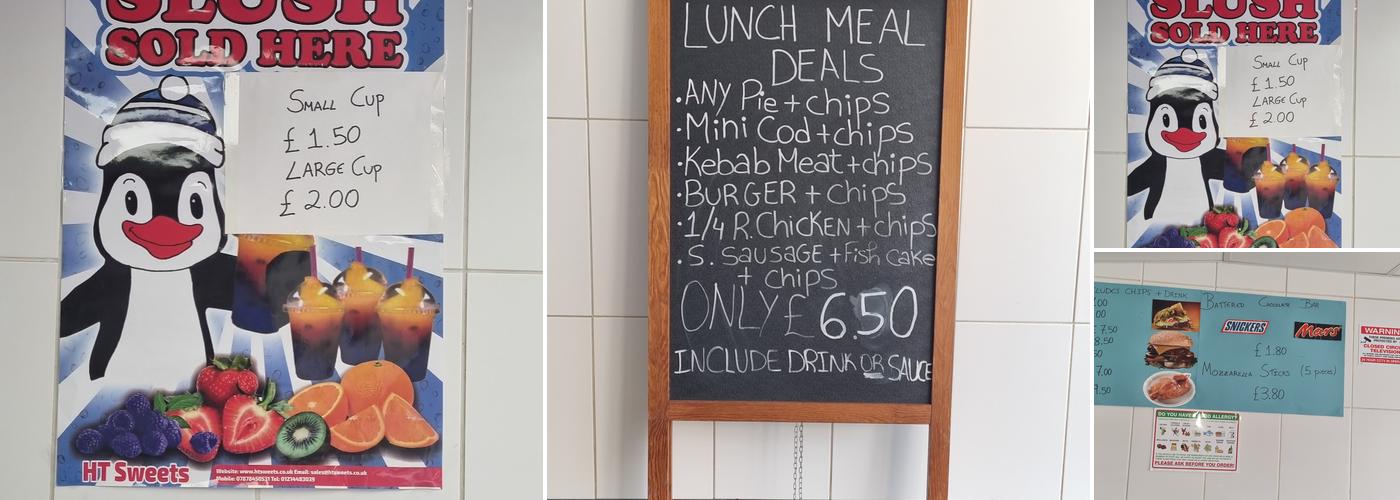 SLUSH
SOLD HERE
SMALL CUP
£ 1.50
LARGE CUP
£ 2.00
HT Sweets
Website: www.htsweets.co.uk Email: sales@htsweets.co.uk
LUNCH MEAL
DEALS
• ANY Pie + chips
• Mini Cod + chips
• Kebab Meat + chips
• BURGER + chips
• 1/4 R. CHICKEN + chips
• S. SAUSAGE + Fish Cake
+ chips
ONLY £ 6.50
INCLUDE DRINK OR SAUCE
SLUSH
SOLD HERE
SMALL CUP
£ 1.50
LARGE CUP
£ 2.00
CHIPS + DRINK
BATTERED CHOCOLATE BAR
SNICKERS Mars
£ 1.80
MOZZARELLA STICKS (5 pieces)
£3.80
7.50
8.50
7.00
9.50
DO YOU HAVE A FOOD ALLERGY?
PLEASE ASK BEFORE YOU ORDER!